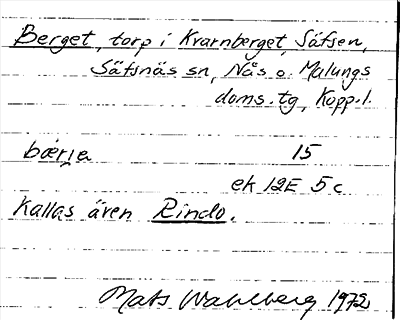 Berget, torp i Kvarnberget, Säfsen,
Säfsnäs sn, Nås o. Malungs
doms. tg, Kopp. l.
bær̯je 15
ek 12E 5c
Kallas även Rindo.
Mats Wahlberg 1972